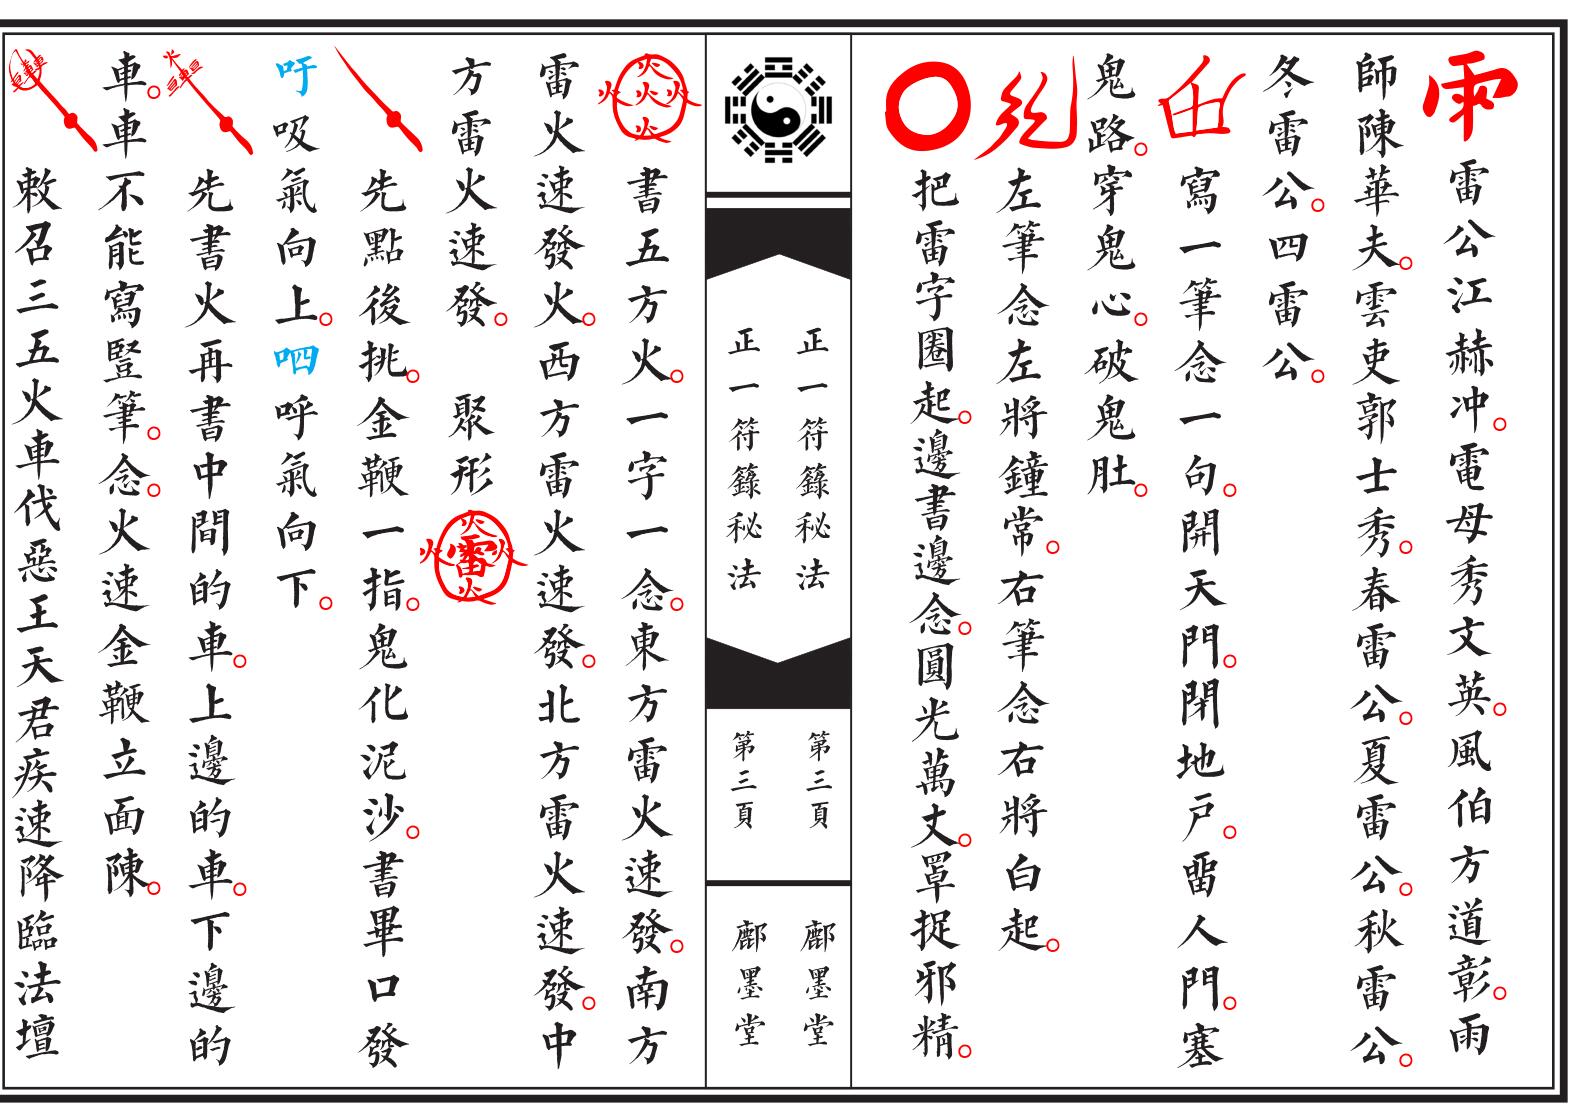 雨 雷公江赫冲。電母秀文英。風伯方道彰。雨
師陳華夫。雲吏郭士秀。春雷公。夏雷公。秋雷公。
冬雷公。四雷公。
寫一筆念一句。開天門。閉地户。畱人門。塞
鬼路。穿鬼心。破鬼肚。
左筆念左將鐘常。右筆念右將白起。
把雷字圈起。邊書邊念。圓光萬丈。罩捉邪精。
正一符籙秘法
正一符籙秘法
第三頁
第三頁
鄜墨堂
鄜墨堂
火火火火火 書五方火。一字一念。東方雷火速發。南方
雷火速發火。西方雷火速發。北方雷火速發。中
方雷火速發。 聚形 火火雷火火
先點後挑。金鞭一指。鬼化泥沙。書畢口發
吁吸氣向上。呬呼氣向下。
火 先書火再書中間的車。上邊的車。下邊的
車。車不能寫豎筆。念。火速金鞭立面陳。
敕召三五火車伐惡王天君疾速降臨法壇